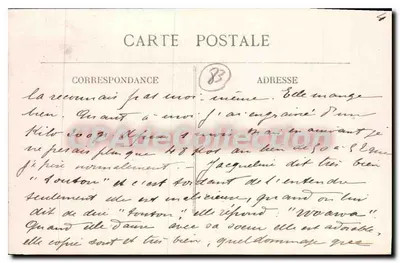 4
CARTE POSTALE
CORRESPONDANCE
83
ADRESSE
la reconnais pas moi-même Elle mange
bien. Quant à moi j'ai engraissé d'un
Kilo 200g dans 1 mois. Mais en août je
ne pesais plus que 48 Kos au lieu de 50 à 52 que
j'pèse normalement. Jacqueline dit très bien
"Tonton" et c'est de l'entendre
seulement elle est malicieuse, quand on lui
dit de dire "Tonton", elle répond: "Wouawa"
Quand elle danse avec sa sœur elle est adorable,
elle copie tout et très bien, quel dommage que